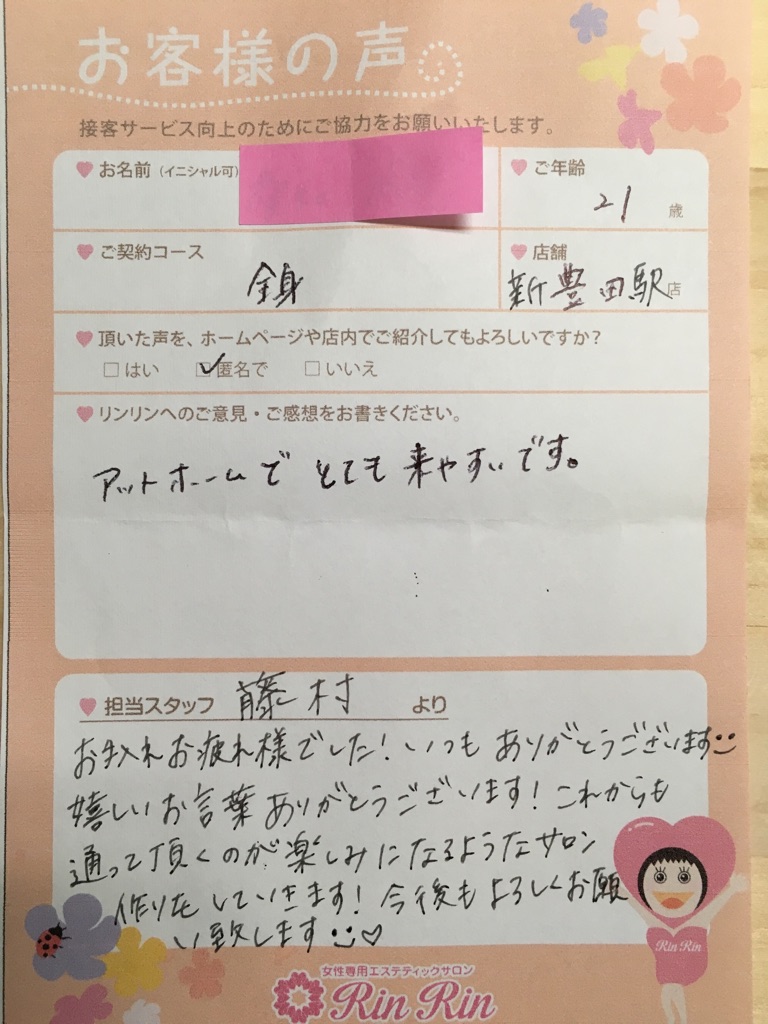 お客様の声
接客サービス向上のためにご協力をお願いいたします。
お名前（イニシャル可）
ご年齢
21 歳
ご契約コース
全身
店舗
新豊田駅店
頂いた声を、ホームページや店内でご紹介してもよろしいですか？
□はい ☑匿名で □いいえ
リンリンへのご意見・ご感想をお書きください。
アットホームで とても 来やすいです。
担当スタッフ 藤村 より
お手入れお疲れ様でした！いつも ありがとうございます
嬉しいお言葉ありがとうございます！これからも
通って頂くのが楽しみになるようなサロン
作りをしていきます！今後もよろしくお願
い致します♡
Rin Rin
女性専用エステティックサロン
Rin Rin